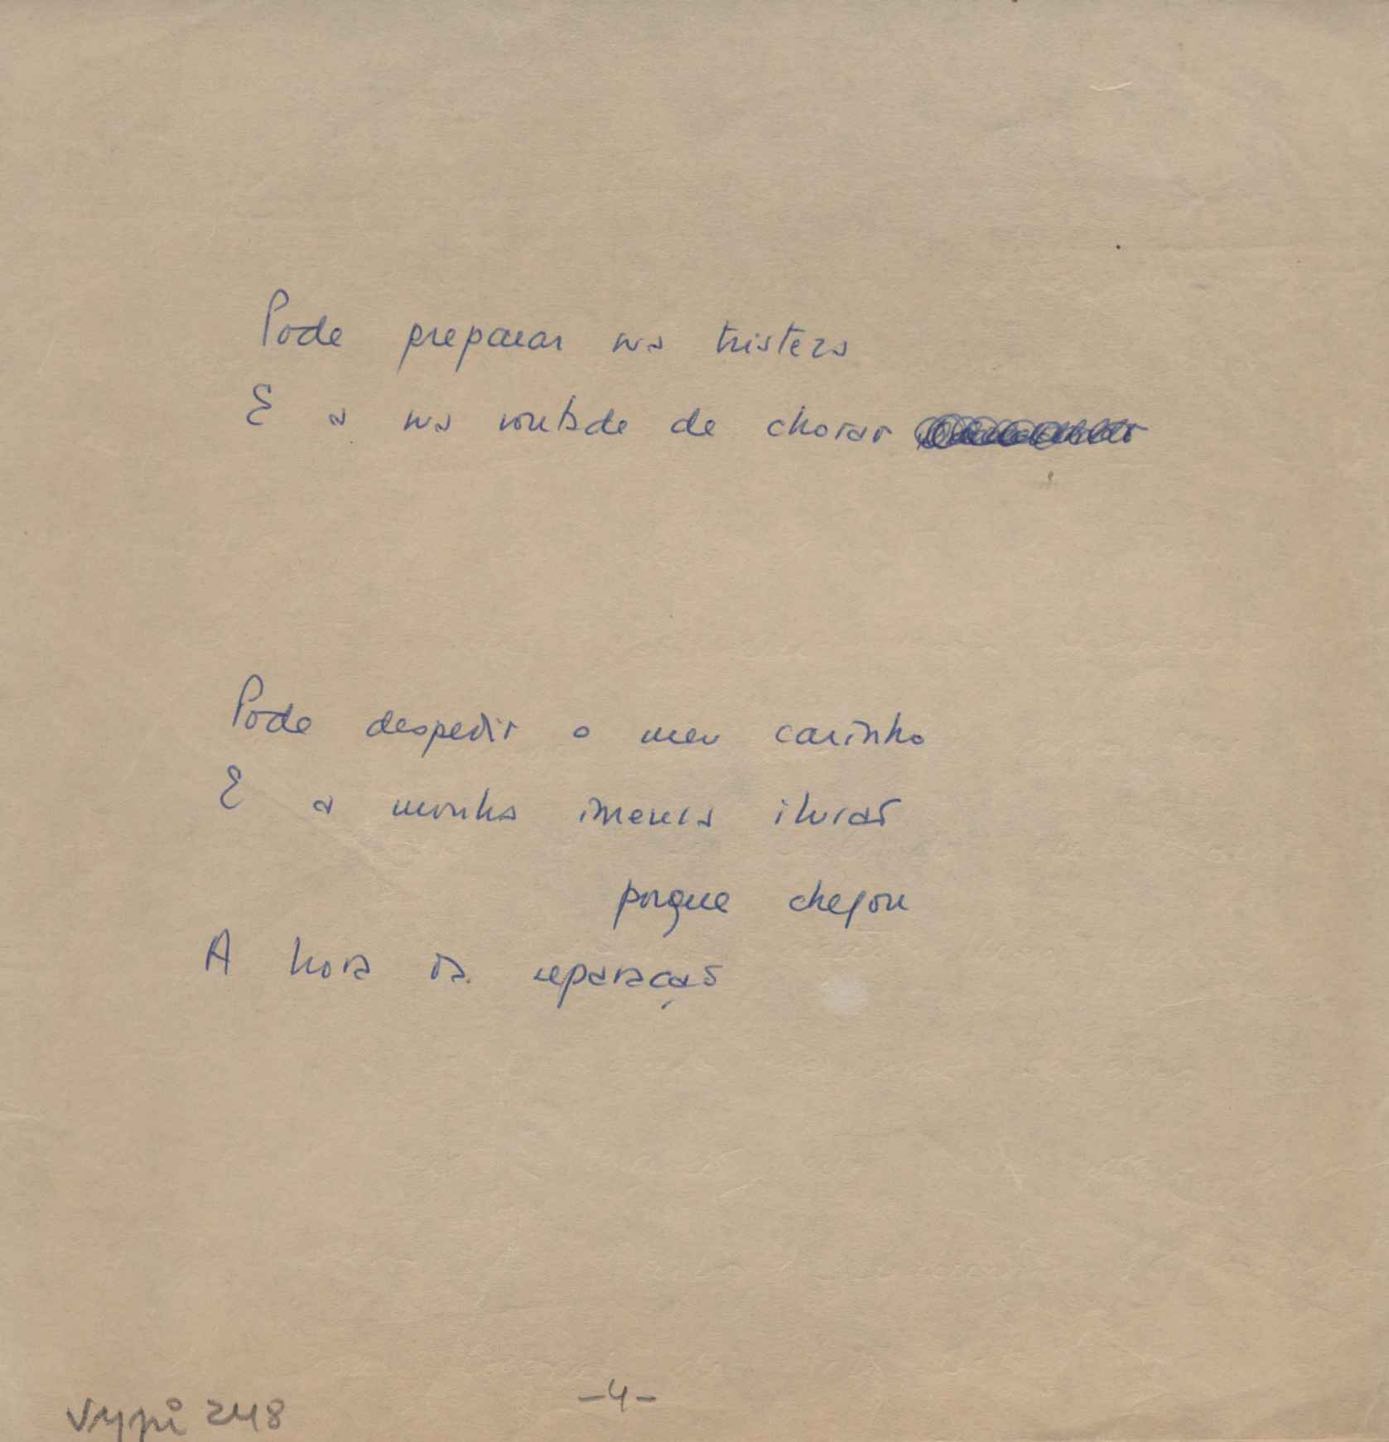 Pode preparar sua tristeza
E a sua vontade de chorar
Pode despedir o meu carinho
E a minha imensa ilusão
porque chegou
A hora da separação
-4-
Vypi 248